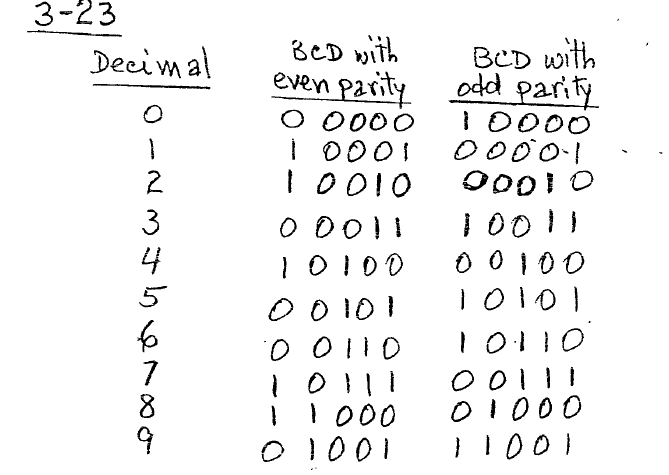 3-23
Decimal BCD with even parity BCD with odd parity
0 0 0000 1 0000
1 1 0001 0 0001
2 1 0010 0 0010
3 0 0011 1 0011
4 1 0100 0 0100
5 0 0101 1 0101
6 0 0110 1 0110
7 1 0111 0 0111
8 1 1000 0 1000
9 0 1001 1 1001